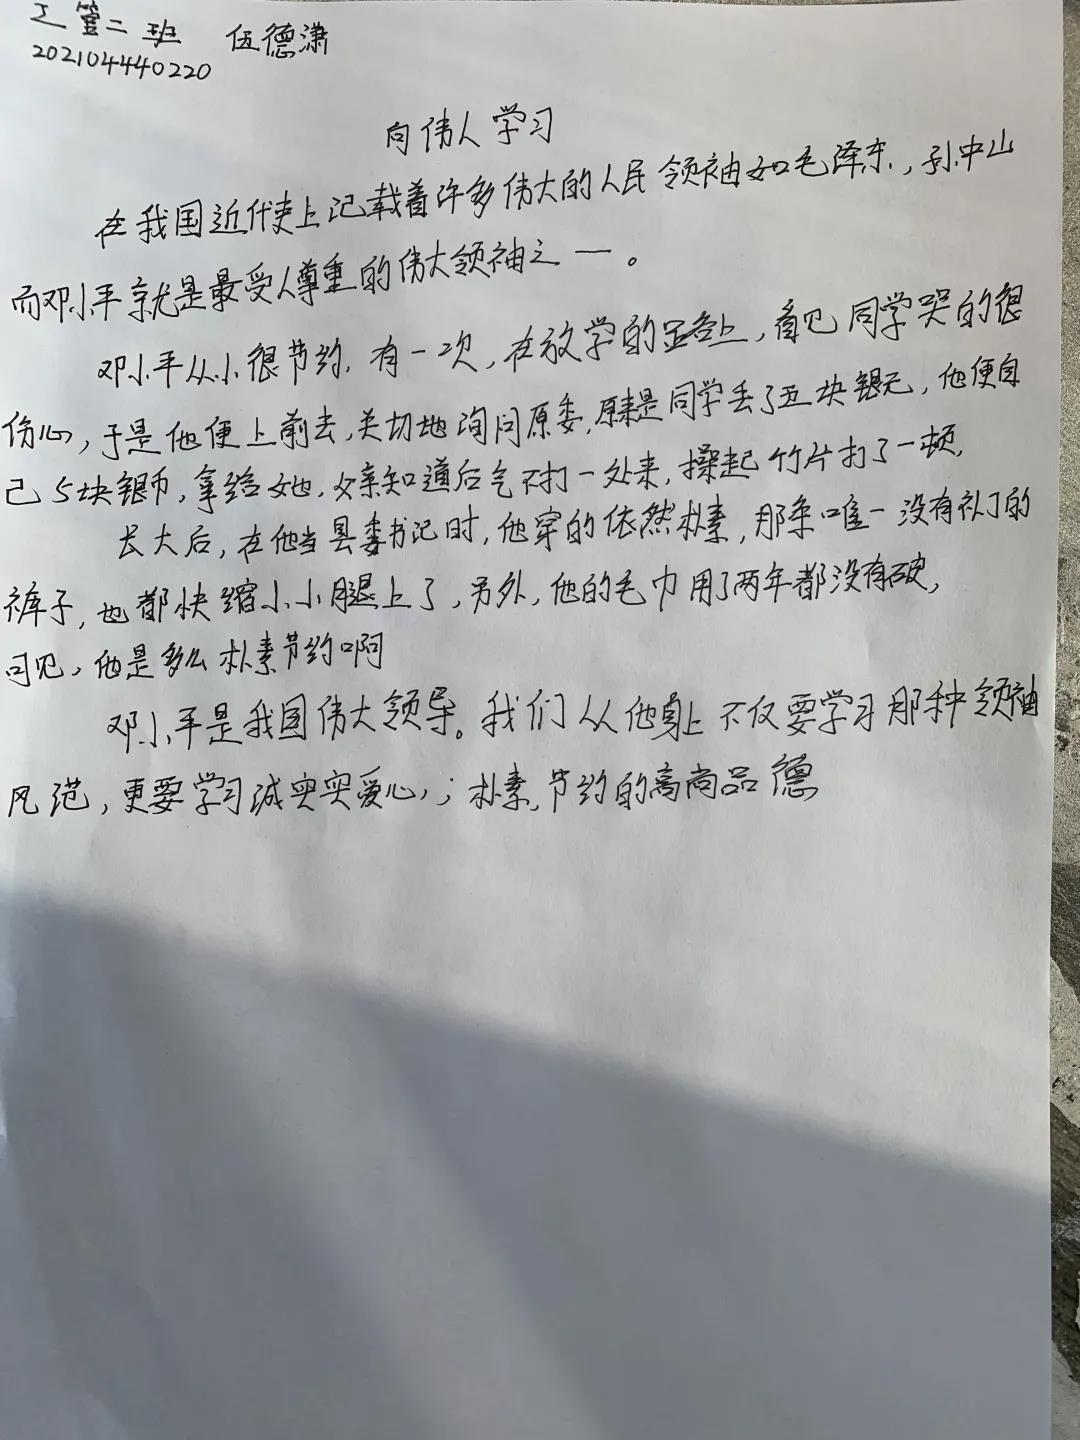 工管二班 伍德潇
202104440220
向伟人学习
在我国近代史上记载着许多伟大的人民领袖如毛泽东,孙中山
而邓小平就是最受人尊重的伟大领袖之一。
邓小平从小很节约,有一次,在放学的路上,看见同学哭的很
伤心,于是他便上前去,关切地询问原委,原来是同学丢了五块银元,他便自
己5块银币,拿给她,父亲知道后气不打一处来,操起竹片打了一顿,
长大后,在他当县委书记时,他穿的依然朴素,那条唯一没有补丁的
裤子,也都快缩小小腿上了,另外,他的毛巾用了两年都没有破,
可见,他是多么朴素节约啊
邓小平是我国伟大领导。我们从他身上不仅要学习那种领袖
风范,更要学习诚实实爱心,;朴素,节约的高尚品德